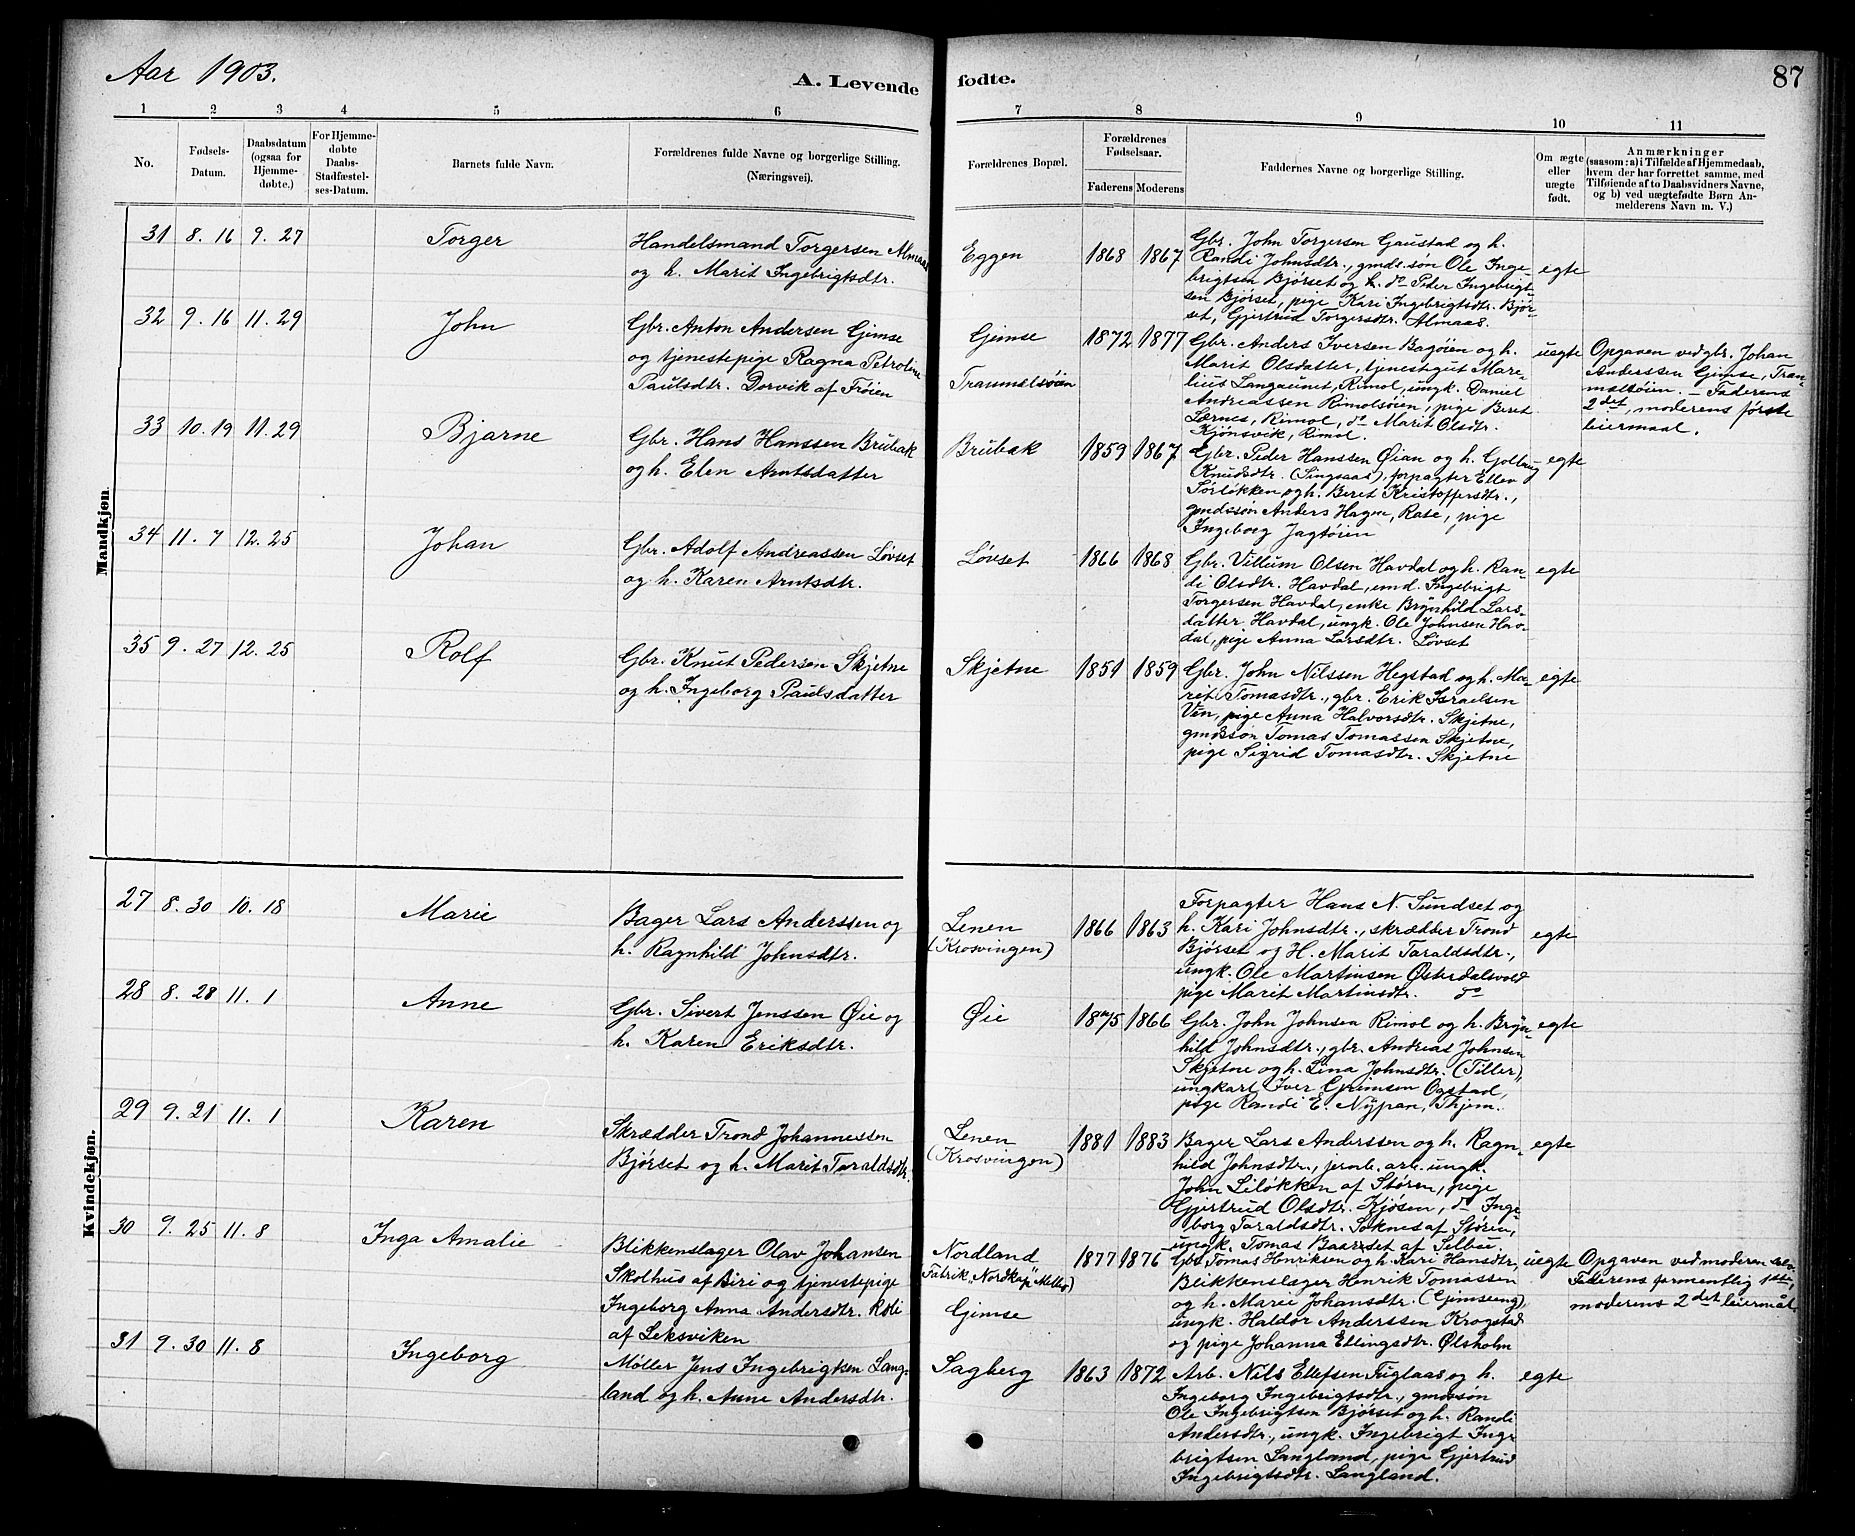 Aar 1903.
A. Levende fødte.
87
1 2 3 4 5 6 7 8 9 10 11
No.
Fødsels-
Datum.
Daabsdatum
(ogsaa for
Hjemme-
døbte.)
For Hjemme-
døbte
Daabs-
Stadfæstel-
ses-Datum.
Barnets fulde Navn.
Forældrenes fulde Navne og borgerlige Stilling.
(Næringsvei).
Forældrenes Bopæl.
Forældrenes
Fødselsaar.
Faderens Moderens
Faddernes Navne og borgerlige Stilling.
Om ægte
eller
uægte
født.
Anmærkninger
(saasom: a) i Tilfælde af Hjemmedaab,
hvem der har forrettet samme, med
Tilføiende af to Daabsvidners Navne,
og b) ved uægtefødte Børn An-
melderens Navn m. V.)
Mandkjøn.
31 8. 16 9. 27 Torger
Handelsmand Torgersen Almaas
og h. Marit Ingebrigtsdtr.
Eggen 1868 1867
Gbr. John Torgersen Gaustad og h.
Randi Johnsdtr., gmds. søn Ole Inge-
brigtsen Bjørset og h. do Peder Ingebrigt-
sen Bjørset, pige Kari Ingebrigtsdtr. Bjør-
set, Gjertrud Torgersdtr. Almaas.
egte
32 9. 16 11. 29 John
Gbr. Anton Andersen Gimse
og tjenestepige Ragna Petroline
Paulsdtr. Dorvik af Frøien
Gimse
Traumelsøien
1872 1877
Gbr. Anders Iversen Bagøien og h.
Marit Olsdatter, tjenestegut Mare-
lius Langaunet, Rimol, ungk. Daniel
Andreassen Rimolsøien, pige Beret
Lernes, Rimol, do Marit Olsdtr.
Kjønsvik, Rimol.
uegte
Opgaven ved gbr. Johan
Anderssen Gimse, Tran-
mælsøien. – Faderens
2det, moderens første
leiermaal.
33 10. 19 11. 29 Bjarne
Gbr. Hans Hanssen Brubak
og h. Elen Arntsdatter
Brubak 1859 1867
Gbr. Peder Hanssen Øian og h. Golbrug
Knudsdtr. (Singsaas), forpagter Ellev
Sørløkken og h. Beret Kristoffersdtr.,
gmdssøn Anders Hagen, Rase, pige
Ingeborg Jagtøien
egte
34 11. 7 12. 25 Johan
Gbr. Adolf Andreassen Løvset
og h. Karen Arntsdtr.
Løvset 1866 1868
Gbr. Villum Olsen Havdal og h. Ran-
di Olsdtr. Havdal, emd. Ingebrigt
Torgersen Havdal, enke Brynhild Lars-
datter Havdal, ungk. Ole Johnsen Hav-
dal, pige Anna Larsdtr. Løvset
egte
35 9. 27 12. 25 Rolf
Gbr. Knut Pedersen Skjetne
og h. Ingeborg Paulsdatter
Skjetne 1851 1859
Gbr. John Nilssen Hegstad og h. Ma-
rit Tomasdtr., gbr. Erik Israelsen
Vin, pige Anna Halvorsdtr. Skjetne,
gmdssøn Tomas Tomassen Skjetne,
pige Sigrid Tomasdtr. Skjetne
egte
Kvindekjøn.
27 8. 30 10. 18 Marie
Bager Lars Anderssen og
h. Ragnhild Johnsdtr.
Lenen
(Krosvingen)
1866 1863
Forpagter Hans N. Sundset og
h. Kari Johnsdtr., skrædder Trond
Bjørset og H. Marit Taraldsdtr.,
ungk. Ole Martinsen Østerdalsvold
pige Marit Martinsdtr. do
egte
28 8. 28 11. 1 Anne
Gbr. Sivert Jenssen Øie og
h. Karen Eriksdtr.
Øie 1875 1866
Gbr. John Johnsen Rimol og h. Bryn-
hild Johnsdtr., gbr. Andreas Johnsen
Skjetne og h. Lina Johnsdtr. (Tiller),
ungkarl Iver Grimsen Ogstad,
pige Randi E. Nypan, Thjem.
egte
29 9. 21 11. 1 Karen
Skrædder Trond Johannessen
Bjørset og h. Marit Taraldsdtr.
Lenen
(Krosvingen)
1881 1883
Bager Lars Anderssen og h. Ragn-
hild Johnsdtr., jernb. arb. ungk.
John Liløkken af Støren, pige
Gjertrud Olsdtr. Kjøsen, do Inge-
borg Taraldsdtr. Soknes af Støren,
ungk. Tomas Baarset af Selbu.
egte
30 9. 25 11. 8 Inga Amalie
Blikkenslager Olav Johansen
Skolhus af Biri og tjenestepige
Ingeborg Anna Andersdtr. Roli
af Leksviken
Nordland
Fabrik „Nordkap" Melbo)
Gimse
1877 1876
Gbr. Tomas Henriksen og h. Kari Hansdtr,
Blikkenslager Henrik Tomassen
og h. Marie Johansdtr. (Gimseeng),
ungk. Haldor Anderssen Krogstad
og pige Johanna Ellingsdtr. Ølsholm
uegte
Opgaven ved moderen selv.
Faderens formentlig 1ste,
moderens 2det leiermål.
31 9. 30 11. 8 Ingeborg
Møller Jens Ingebrigtsen Lang-
land og h. Anne Andersdtr.
Sagberg 1863 1872
Arb. Nils Ellefsen Fuglaas og h.
Ingeborg Ingebrigtsdtr., gmdssøn
Ole Ingebrigtsen Bjørset og h. Randi
Andersdtr., ungk. Ingebrigt Inge-
brigtsen Langland, pige Gjertrud
Ingebrigtsdtr. Langland.
egte